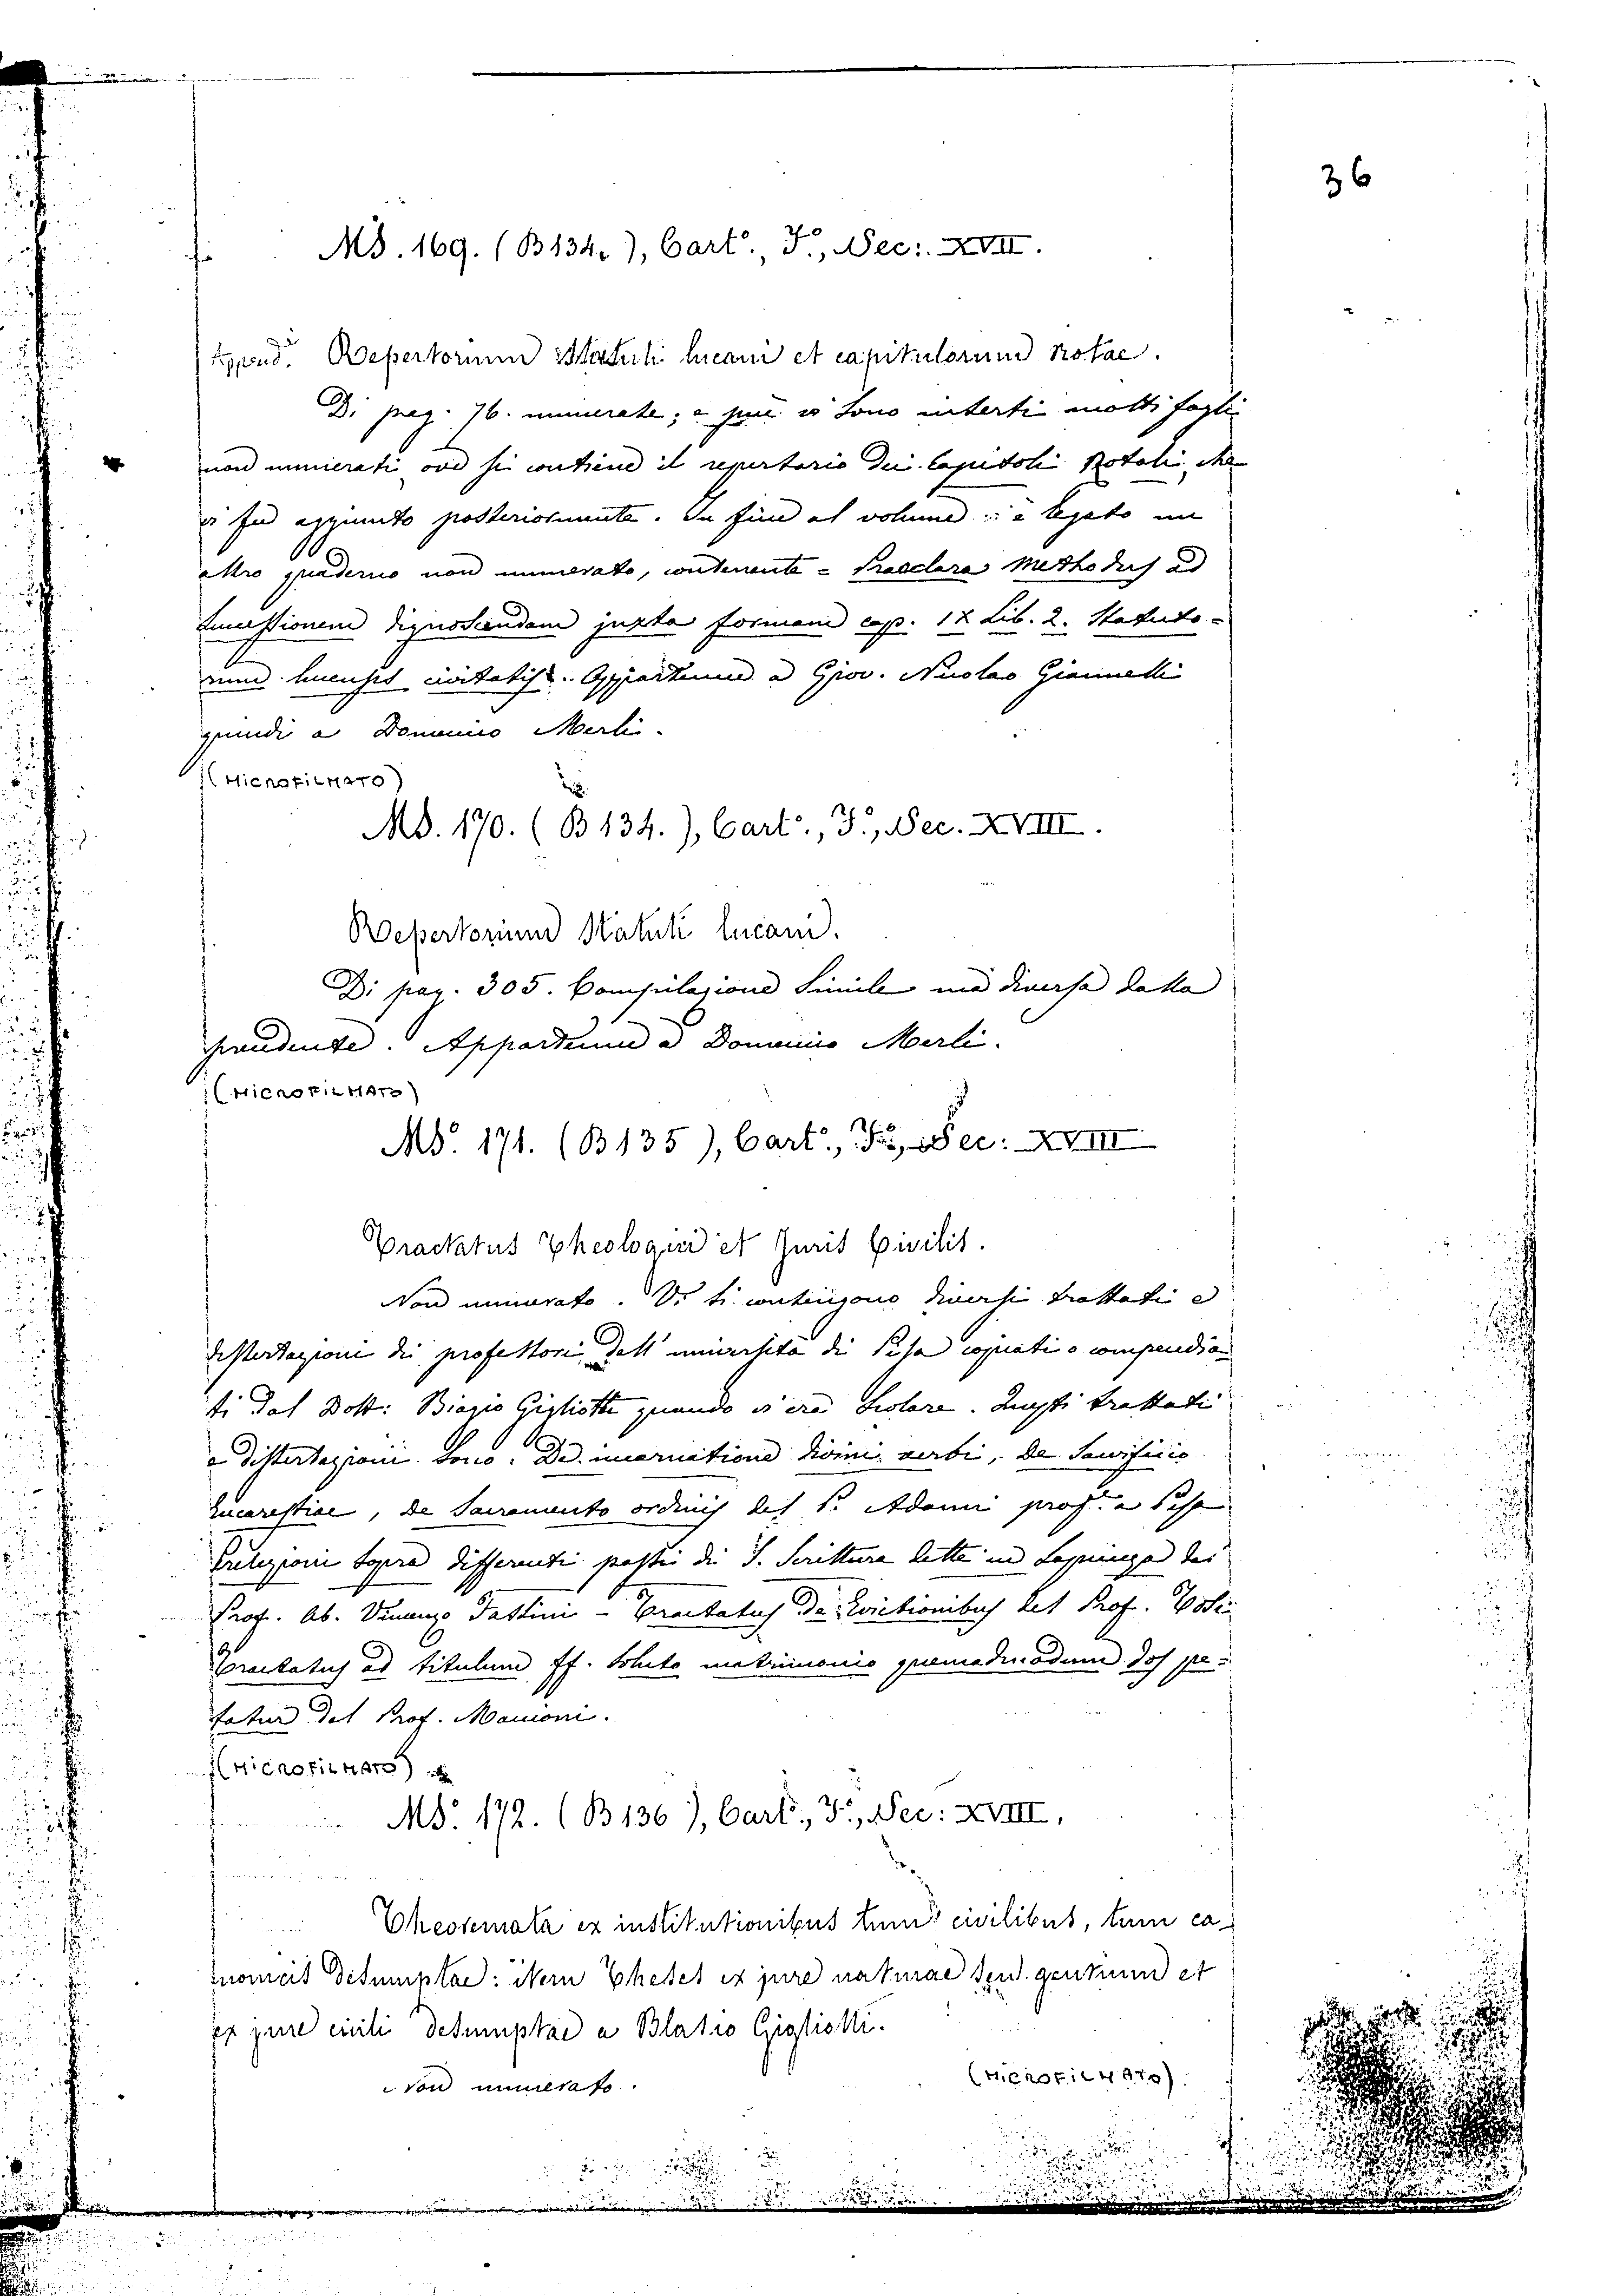 36
Ms. 169. (B134.), Cart°., F°., Sec: XVII.
Append. Repertorium Statuti lucani et capitulorum Rotae.
Di pag. 76. numerate; e poi vi sono inserti molti fogli
non numerati ove si contiene il repertorio dei Capitoli Rotali, che
vi fu aggiunto posteriormente. In fine al volume vi è legato un
altro quaderno non numerato, contenente = Praeclara methodus ad
successionem dignoscendam juxta formam cap. 12 Lib. 2. Statuto=
rum lucensis civitatis. Appartenne a Giov. Nicolao Giannelli
quindi a Domenico Merli.
(MICROFILMATO)
Ms. 170. (B134.), Cart°., F°., Sec. XVIII.
Repertorium Statuti lucani.
Di pag. 305. Compilazione simile ma diversa dalla
precedente. Appartenne a Domenico Merli.
(MICROFILMATO)
Ms. 171. (B135), Cart°., F°., Sec: XVIII
Tractatus Theologici et Juris Civilis.
Non numerato. Vi si contengono diversi trattati e
dissertazioni di professori dell'università di Pisa copiati o compendia
ti dal Dott: Biagio Gigliotti quando vi era scolare. Questi trattati
e dissertazioni sono: De incarnatione divini verbi, de Sacrificio
Eucarestiae, de Sacramento ordinis del P. Adami prof. a Pisa
Prelezioni sopra differenti passi di S. Scrittura lette in Sapienza dal
Prof. Ab. Vincenzo Fassini - Tractatus De Evictionibus del Prof. Tosi
Tractatus ad titulum ff. Soluto matrimonio quemadmodum dos pe=
tatur del Prof. Maccioni.
(MICROFILMATO)
Ms. 172. (B136), Cart°., F°., Sec: XVIII.
Theoremata ex institutionibus tum civilibus, tum ca-
nonicis desumptae: item Theses ex jure naturae seu gentium et
ex jure civili desumptae a Blasio Gigliotti.
Non numerato.
(MICROFILMATO)